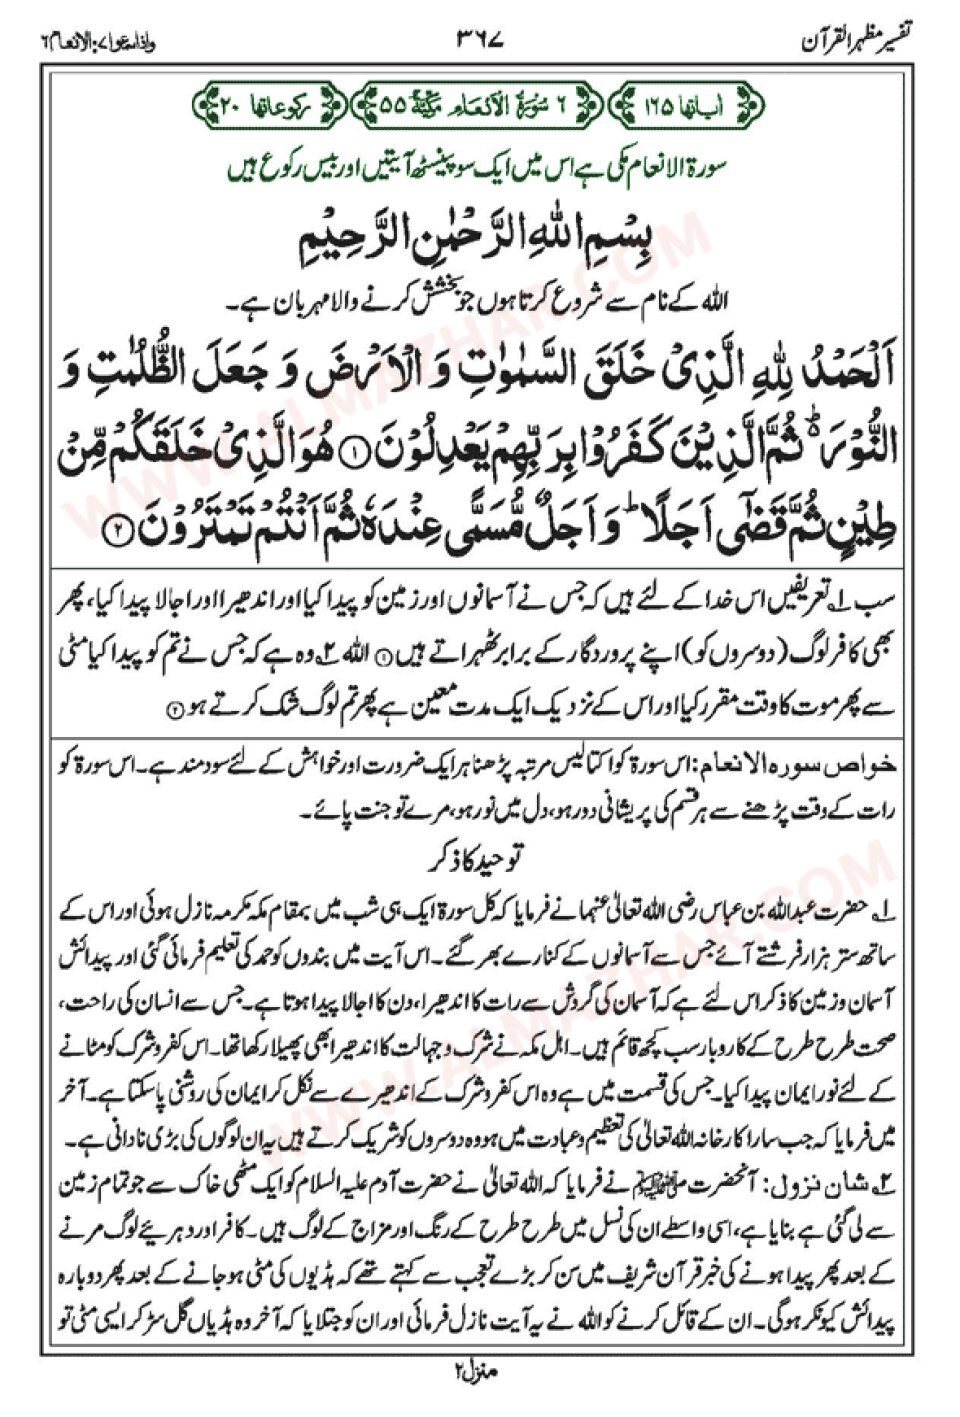 تفسیر مظہر القرآن
۳۶۷
واذا سمعوا ۷: الانعام ۶
اٰیاتها ۱۶۵
۶ سُوْرَةُ الْاَنْعَامِ مَكِّيَّةٌ ۵۵
ركوعاتها ۲۰
سورۃ الانعام مکی ہے اس میں ایک سو پینسٹھ آیتیں اور بیس رکوع ہیں
بِسْمِ اللهِ الرَّحْمٰنِ الرَّحِيْمِ
اللہ کے نام سے شروع کرتا ہوں جو بخشش کرنے والا مہربان ہے۔
اَلْحَمْدُ لِلّٰهِ الَّذِیْ خَلَقَ السَّمٰوٰتِ وَ الْاَرْضَ وَ جَعَلَ الظُّلُمٰتِ وَ
النُّوْرَ ۬ؕ ثُمَّ الَّذِیْنَ كَفَرُوْا بِرَبِّهِمْ یَعْدِلُوْنَ ۝۱ هُوَ الَّذِیْ خَلَقَكُمْ مِّنْ
طِیْنٍ ثُمَّ قَضٰۤی اَجَلًا ؕ وَ اَجَلٌ مُّسَمًّی عِنْدَهٗ ثُمَّ اَنْتُمْ تَمْتَرُوْنَ ۝۲
سب ۱؎ تعریفیں اس خدا کے لئے ہیں کہ جس نے آسمانوں اور زمین کو پیدا کیا اور اندھیرا اور اجالا پیدا کیا، پھر
بھی کافر لوگ (دوسروں کو) اپنے پروردگار کے برابر ٹھہراتے ہیں ۝۱ اللہ ۲؎ وہ ہے کہ جس نے تم کو پیدا کیا مٹی
سے پھر موت کا وقت مقرر کیا اور اس کے نزدیک ایک مدت معین ہے پھر تم لوگ شک کرتے ہو ۝۲
خواص سورہ الانعام: اس سورۃ کو اکتالیس مرتبہ پڑھنا ہر ایک ضرورت اور خواہش کے لئے سودمند ہے۔ اس سورۃ کو
رات کے وقت پڑھنے سے ہر قسم کی پریشانی دور ہو، دل میں نور ہو، مرے تو جنت پائے۔
توحید کا ذکر
۱؎ حضرت عبداللہ بن عباس رضی اللہ تعالیٰ عنہما نے فرمایا کہ کل سورۃ ایک ہی شب میں بمقام مکہ مکرمہ نازل ہوئی اور اس کے
ساتھ ستر ہزار فرشتے آئے جس سے آسمانوں کے کنارے بھر گئے۔ اس آیت میں بندوں کو حمد کی تعلیم فرمائی گئی اور پیدائش
آسمان و زمین کا ذکر اس لئے ہے کہ آسمان کی گردش سے رات کا اندھیرا، دن کا اجالا پیدا ہوتا ہے۔ جس سے انسان کی راحت،
صحت طرح طرح کے کاروبار سب کچھ قائم ہیں۔ اہل مکہ نے شرک و جہالت کا اندھیرا بھی پھیلا رکھا تھا۔ اس کفر و شرک کو مٹانے
کے لئے نور ایمان پیدا کیا۔ جس کی قسمت میں ہے وہ اس کفر و شرک کے اندھیرے سے نکل کر ایمان کی روشنی پا سکتا ہے۔ آخر
میں فرمایا کہ جب سارا کارخانہ اللہ تعالیٰ کی تعظیم و عبادت میں ہو وہ دوسروں کو شریک کرتے ہیں یہ ان لوگوں کی بڑی نادانی ہے۔
۲؎ شان نزول: آنحضرت ﷺ نے فرمایا کہ اللہ تعالیٰ نے حضرت آدم علیہ السلام کو ایک مٹھی خاک سے جو تمام زمین
سے لی گئی ہے بنایا ہے، اسی واسطے ان کی نسل میں طرح طرح کے رنگ اور مزاج کے لوگ ہیں۔ کافر اور دہریئے لوگ مرنے
کے بعد پھر پیدا ہونے کی خبر قرآن شریف میں سن کر بڑے تعجب سے کہتے تھے کہ ہڈیوں کی مٹی ہو جانے کے بعد پھر دوبارہ
پیدائش کیونکر ہوگی۔ ان کے قائل کرنے کو اللہ نے یہ آیت نازل فرمائی اور ان کو جتلایا کہ آخر وہ ہڈیاں گل سڑ کر ایسی مٹی تو
منزل ۲
WWW.ALMAZHAR.COM
WWW.ALMAZHAR.COM